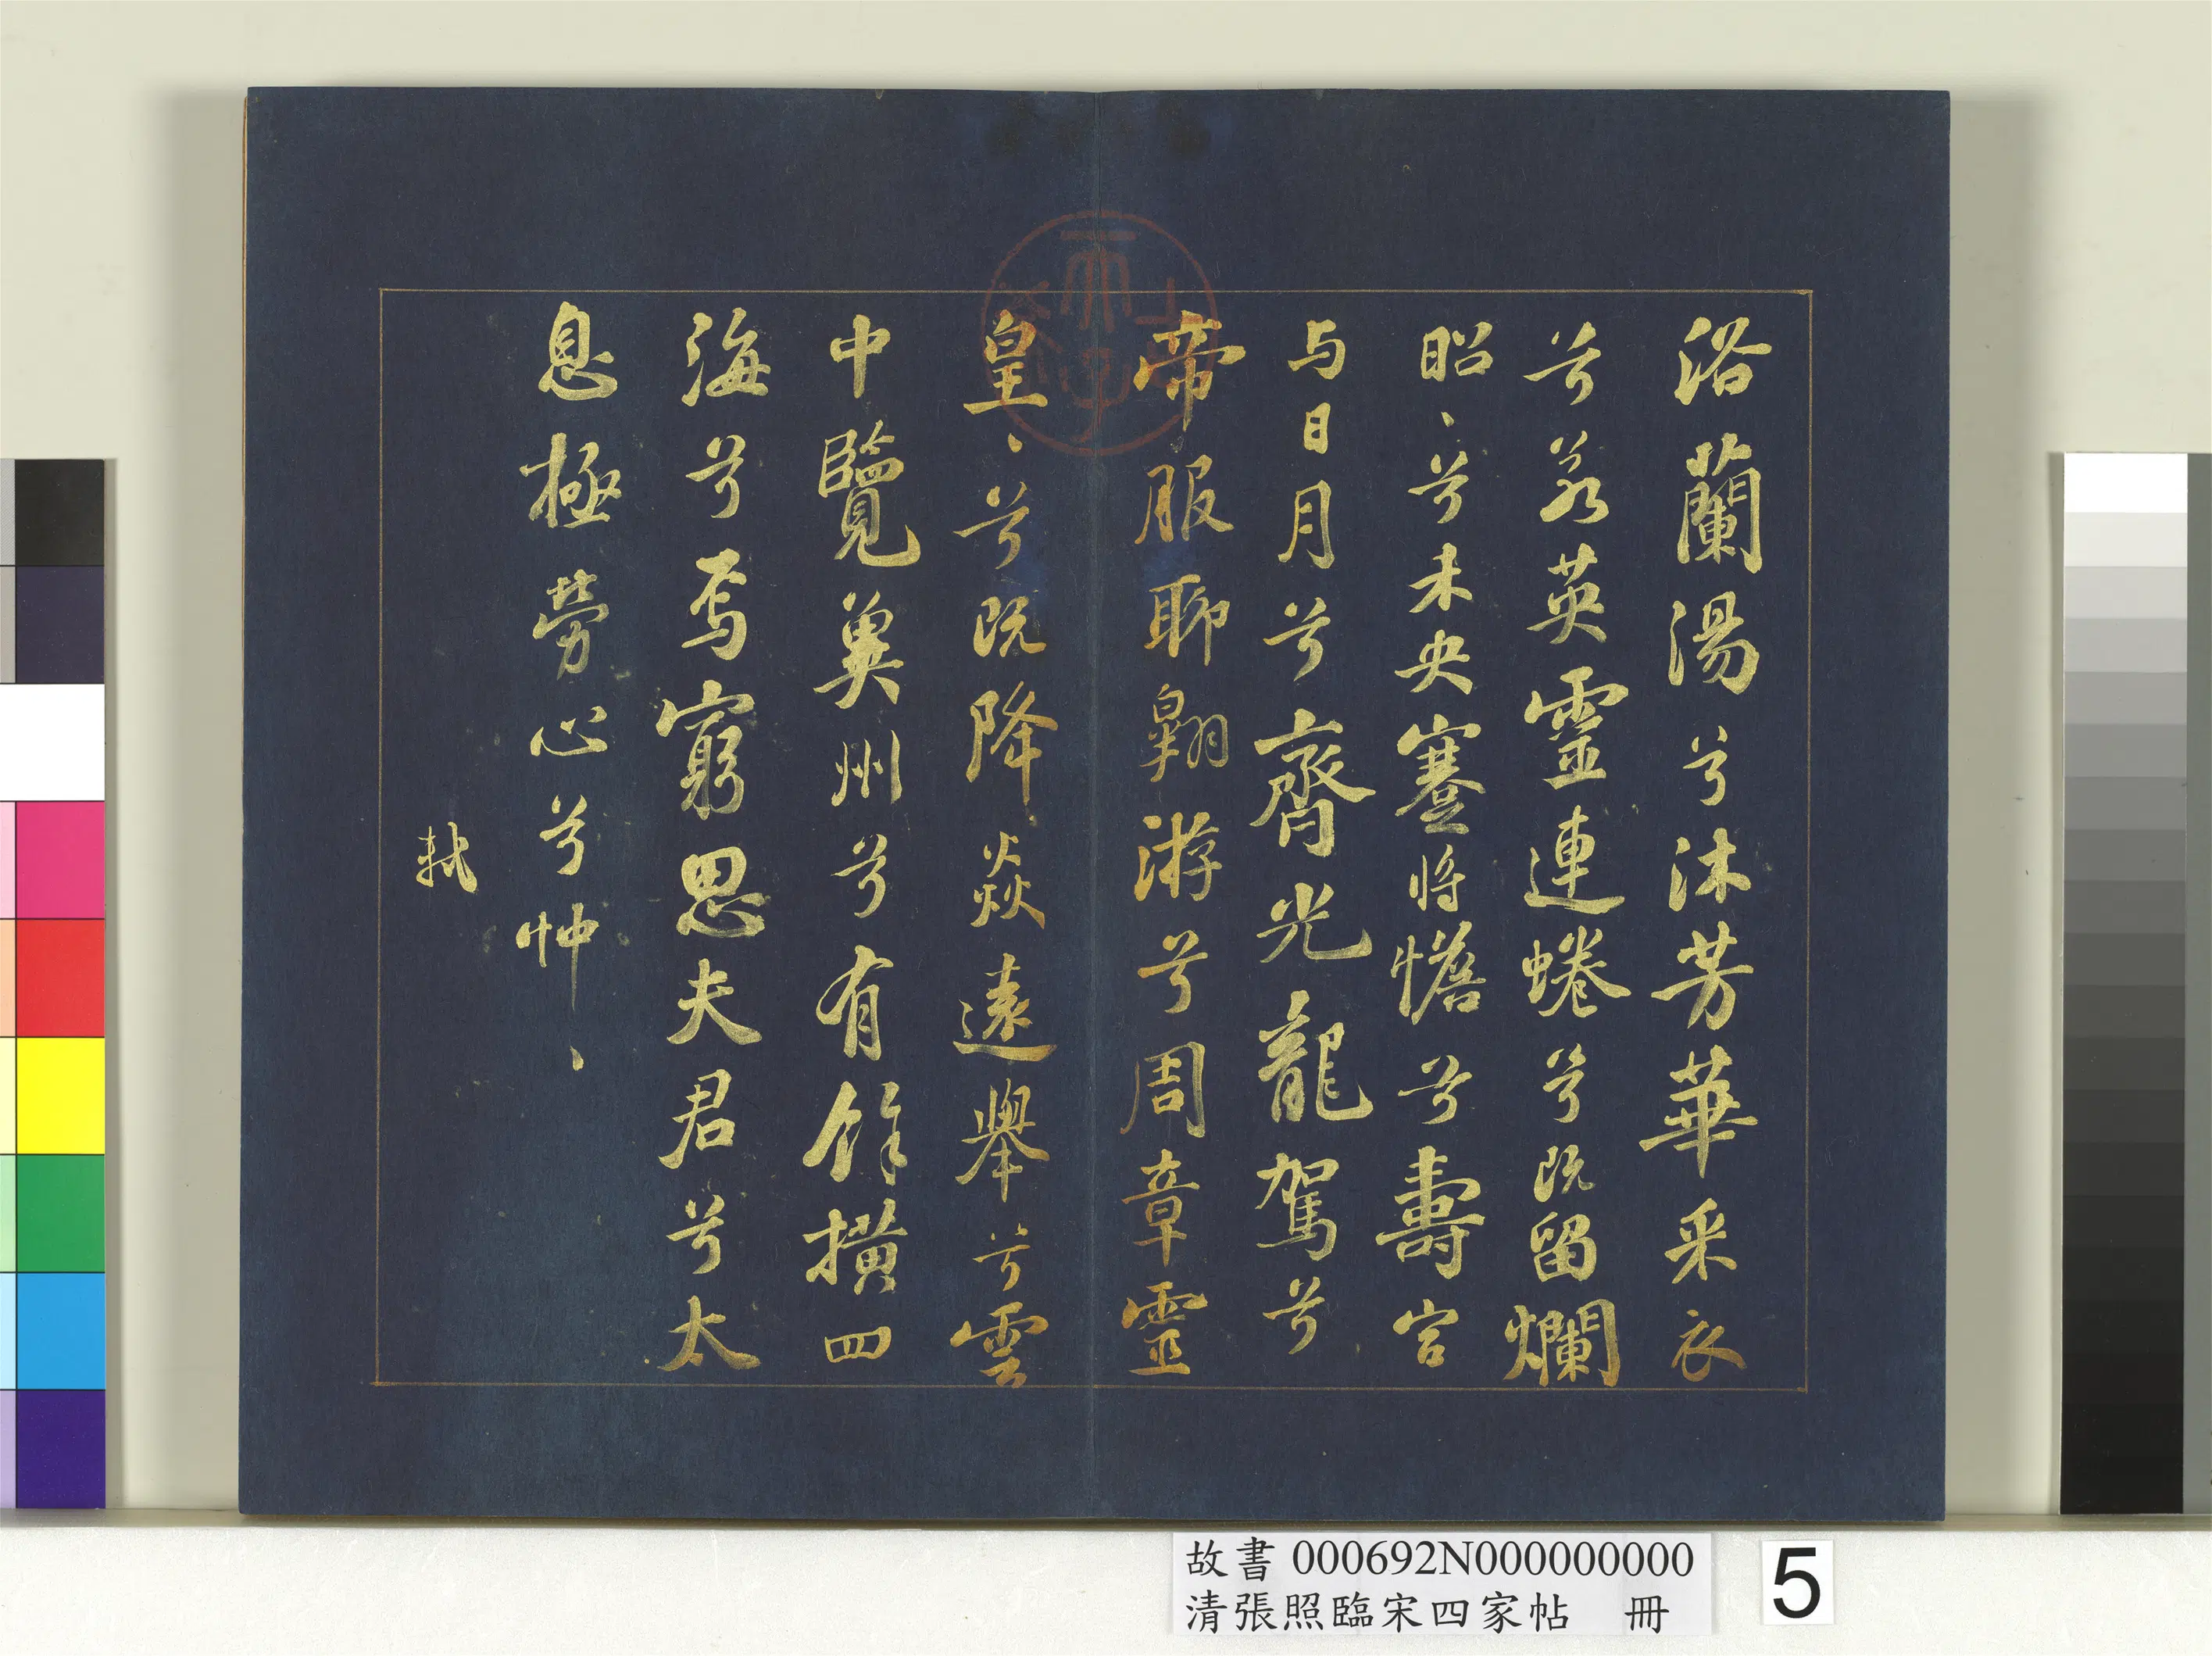 浴蘭湯兮沐芳華采衣
兮若英靈連蜷兮既留爛
昭〻兮未央蹇將憺兮壽宮
与日月兮齊光龍駕兮
帝服聊翱游兮周章靈
皇〻兮既降猋遠舉兮雲
中覽兾州兮有餘橫四
海兮焉窮思夫君兮太
息極勞心兮忡〻
軾
故書 000692N000000000
清張照臨宋四家帖 冊
5